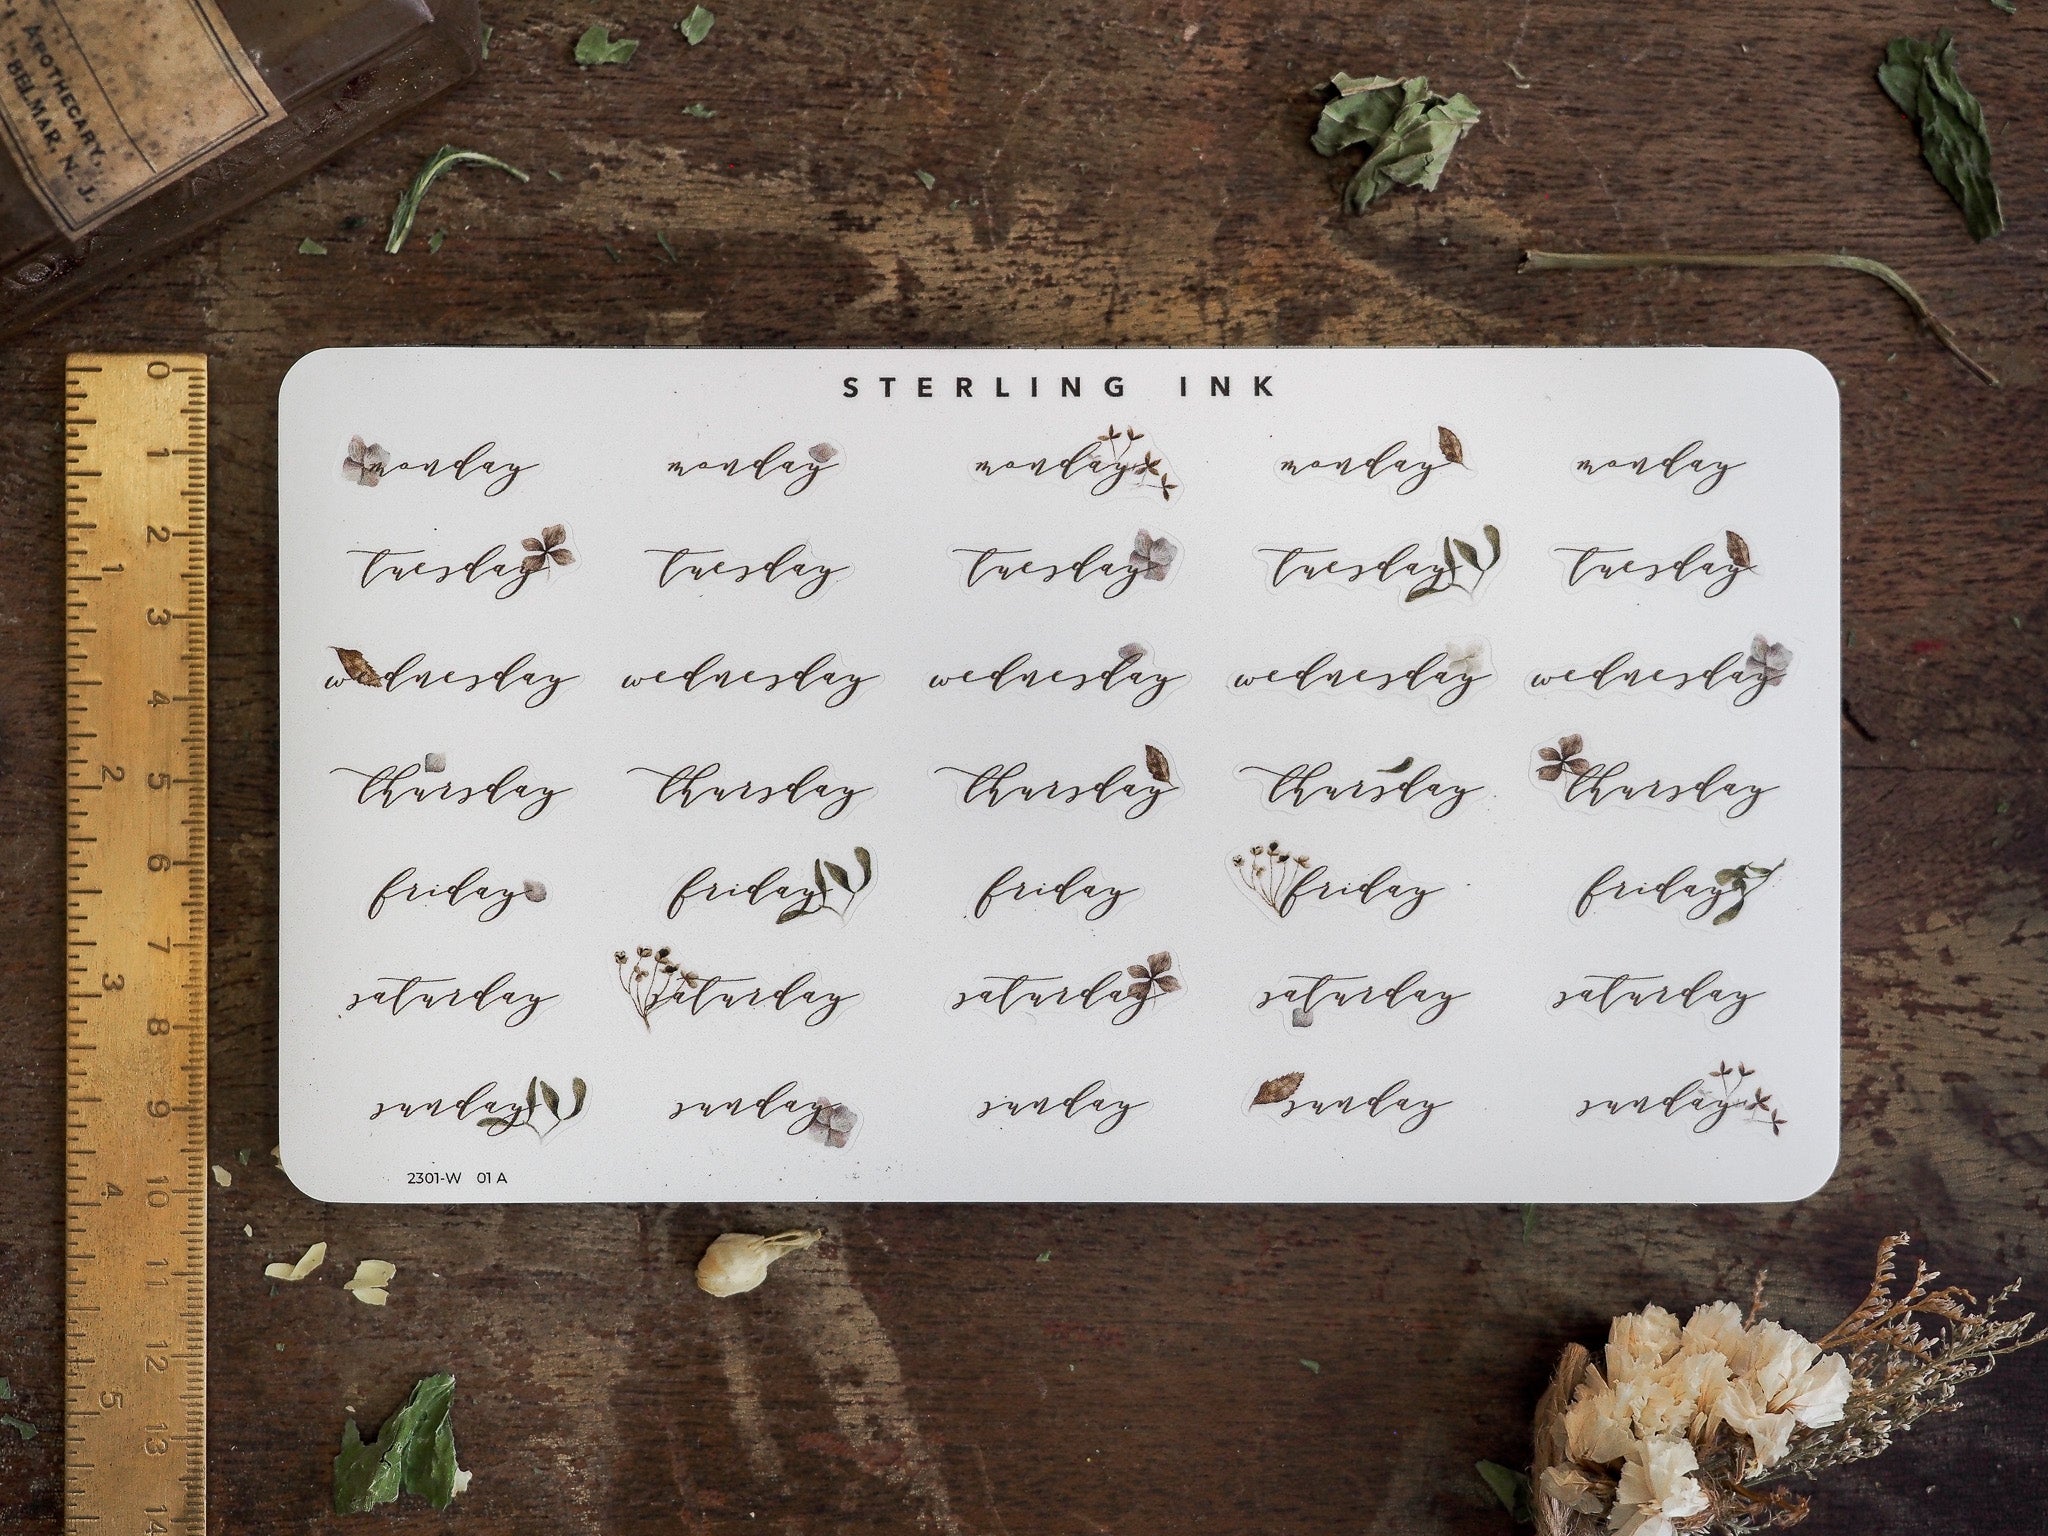 APOTHECARY,
BELMAR, N. J.
STERLING INK
monday monday monday monday monday
tuesday tuesday tuesday tuesday tuesday
wednesday wednesday wednesday wednesday wednesday
thursday thursday thursday thursday thursday
friday friday friday friday friday
saturday saturday saturday saturday saturday
sunday sunday sunday sunday sunday
2301-W 01 A
0
1
2
3
4
5
6
7
8
9
10
11
12
13
14
1
2
3
4
5